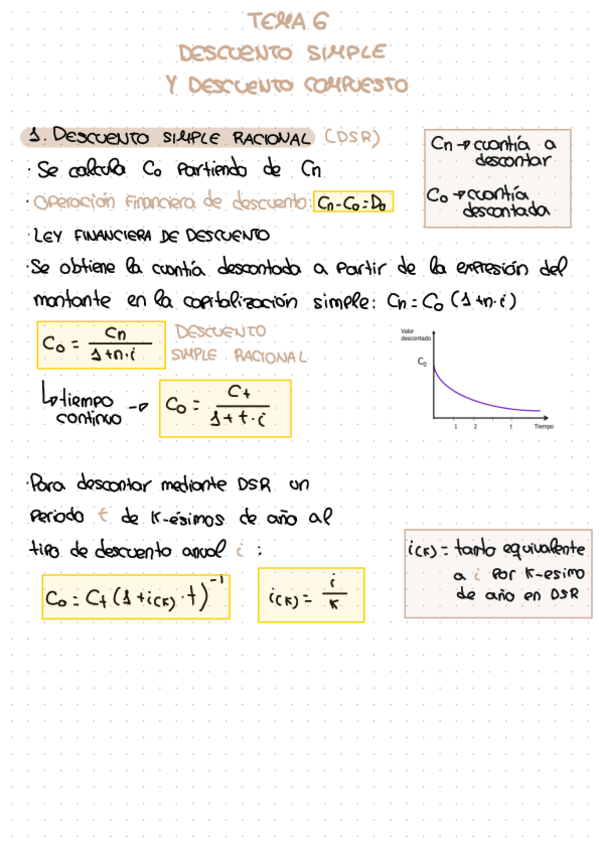 TEMA 6
DESCUENTO SIMPLE
Y DESCUENTO COMPUESTO
1. DESCUENTO SIMPLE RACIONAL (DSR)
Cn → cuantía a
descontar
C₀ → cuantía
descontada
· Se calcula C₀ partiendo de Cn
· Operación financiera de descuento: Cn - C₀ = D₀
· LEY FINANCIERA DE DESCUENTO
· Se obtiene la cuantía descontada a partir de la expresión del
montante en la capitalización simple: Cn = C₀ (1+n·i)
C₀ = Cn / 1+n·i
DESCUENTO
SIMPLE RACIONAL
↳ tiempo
continuo → C₀ = Ct / 1+t·i
Valor
descontado
C₀
1 2 t Tiempo
· Para descontar mediante DSR un
periodo t de k-ésimos de año al
tipo de descuento anual i :
C₀ = Ct (1+i(k)·t)⁻¹
i(k) = i / k
i(k) = tanto equivalente
a i por k-esimo
de año en DSR